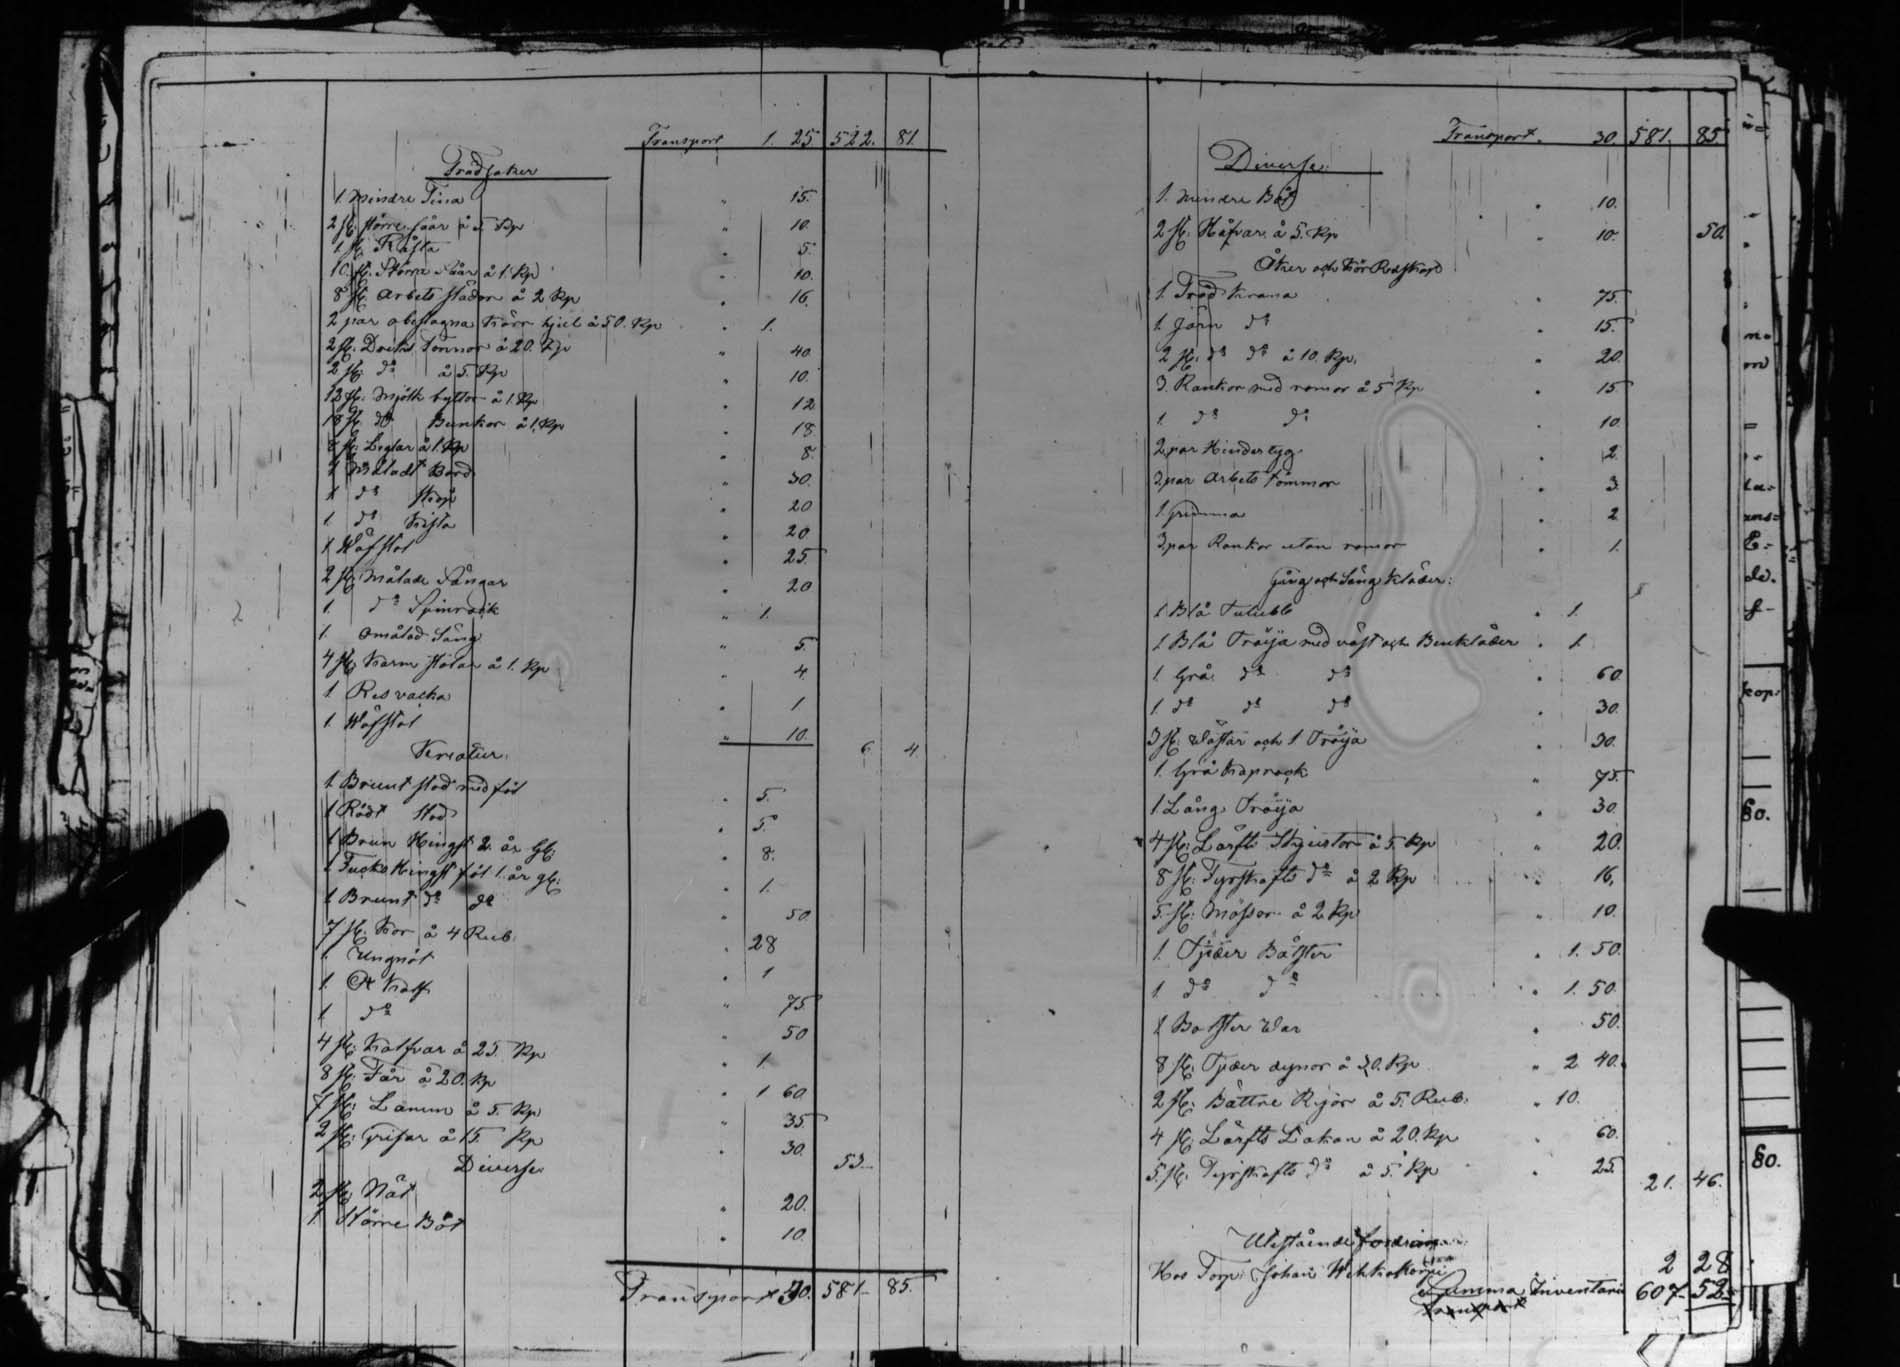 Transport 1. 25 522. 81.
Trädsaker
1 mindre Tina " 15.
2 st: större såar à 5. Kp " 10.
1 st. " 5.
10. st. Större Såar à 1. Kp " 10.
8 st. Arbets slädor à 2 Kp " 16.
2 par obeslagna kärr hjul à 50. Kp " 1.
2 st: Dricks tonnor à 20. Kp " 40
2 st. do à 5. Kp " 10.
12 st. Mjölk byttor à 1. Kp " 12
18 st. do Bunkor à 1. Kp " 18
8 st: Leglar à 1. Kp " 8.
1 Måladt Bord " 30.
1 do skåp " 20
1. do Kista " 20
1 Wäfstol " 25
2 st. Målade Sängar " 20
1. do Spinrock " 1.
1. omålad Säng " 5.
4 st. Karm stolar à 1. Kp " 4.
1 Res vacka " 1
1. Wäfstol " 10. 6 4.
Kreatur.
1 Brunt stod med föl " 5.
1 Rödt stod " 5.
1 Brun Hingst 2. år gl. " 8.
1 Fucks Hingst föl 1. år gl: " 1.
1 Brunt do do " 50.
7 st. Kor à 4 Rub. " 28
1. Ungnöt " 1
1. Kalf " 75
1 do " 50
4 st. Kalfvar à 25. Kp " 1
8 st. Får à 20. Kp " 1 60
7 st. Lamm à 5. Kp " 35
2 st: Grisar à 15. Kp " 30. 53
Diverse
2 st. Nät " 20.
1 större Båt " 10.
Transport 30. 581 85.
Transport " 30. 581. 85.
Diverse.
1. mindre Båt " 10.
2 st. Håfvar à 5. Kp " 10. 50.
Åker och Kör Redskap
1. Träd Krana " 75.
1. Järn do " 15.
2 st. do do à 10. Kp. " 20.
3. Rankor med romor à 5 Kp " 15
1. do do " 10.
2 par Hindertyg " 2.
3 par Arbets tömmor " 3
1 grimma " 2
3 par Rankor utan romor " 1.
Gång och Säng Kläder:
1 Blå Tulubb " 1.
1 Blå Tröija med väst och Benkläder " 1.
1. Grå do do " 60
1. do do do " 30.
3 st: Västar och 1 Tröija " 30.
1. Grå Kaprock " 75.
1 Lång Tröija " 30
4 st: Lärfts Skjortor à 5. Kp " 20.
8 st. Fyrskafts do à 2 Kp " 16.
5. st: Mössor à 2 Kp " 10.
1. Fjäder Bålster " 1. 50.
1. do do " 1. 50
1 Bolster War " 50.
8 st. Fjäder dynor à 30. Kp " 2 40.
2 st. Bättre Rijor à 5. Rub. " 10.
4 st. Lärfts Lakan à 20. Kp " 60.
5. st. Fyrskafts do à 5. Kp " 25 21. 46.
Utestående fordringar
Hos Torp: Johan 2 28
Summa Inventarii 607 52
Transport